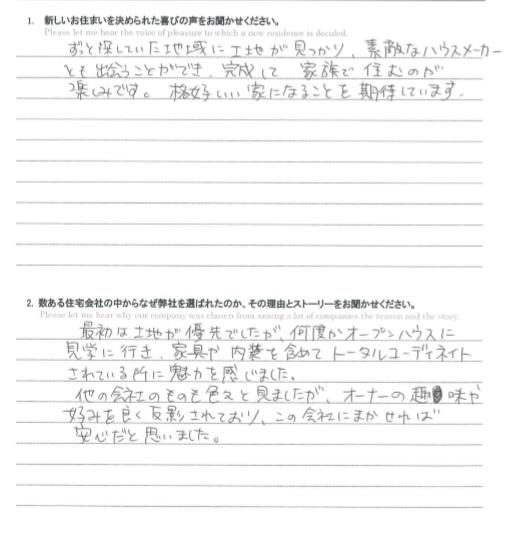 1. 新しいお住まいを決められた喜びの声をお聞かせください。
Please let me hear the voice of pleasure to which a new residence is decided.
ずっと探していた地域に土地が見つかり、素敵なハウスメーカー
とも出会うことができ、完成して 家族で住むのが
楽しみです。格好いい家になることを期待しています。
2. 数ある住宅会社の中からなぜ弊社を選ばれたのか、その理由とストーリーをお聞かせください。
Please let me hear why our company was chosen from among a lot of companies the reason and the story.
最初は土地が優先でしたが、何度かオープンハウスに
見学に行き、家具や内装を含めてトータルコーディネイト
されている所に魅力を感じました。
他の会社のものも色々と見ましたが、オーナーの趣味や
好みを良く反影されており、この会社にまかせれば
安心だと思いました。